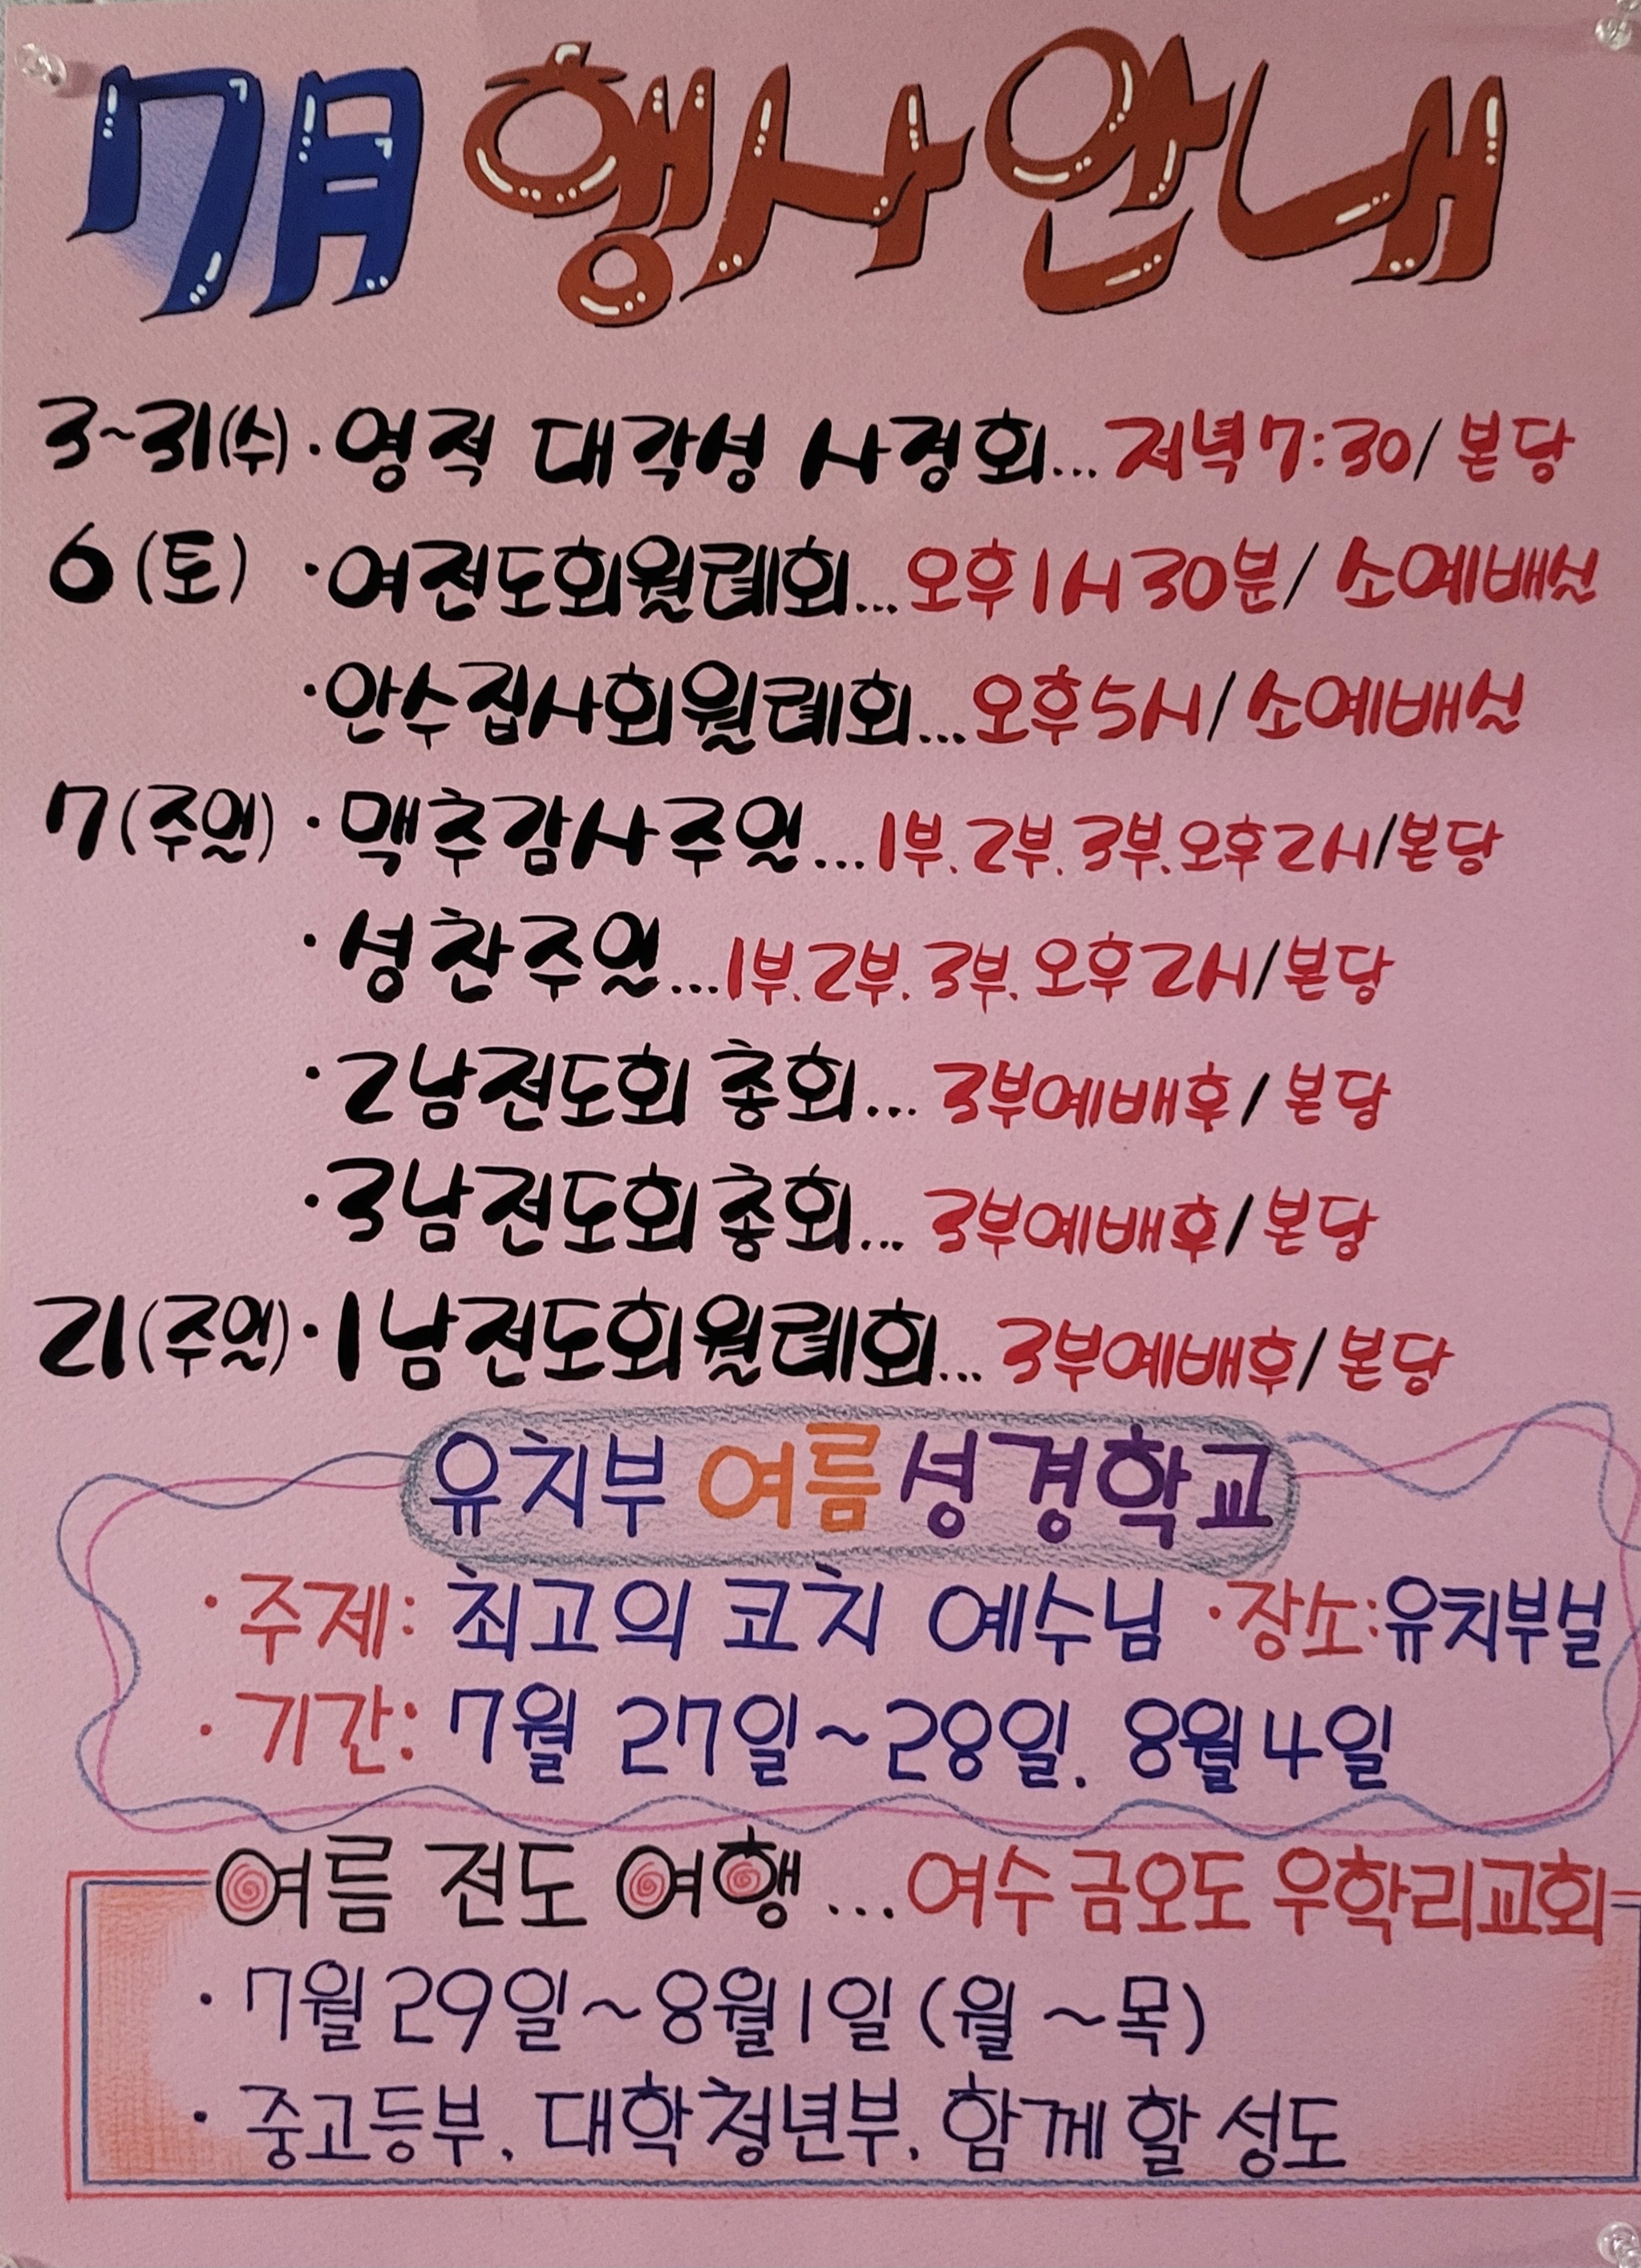 7月 행사안내
3~31(수)·영적 대각성 사경회...저녁7:30/본당
6(토) ·여전도회월례회...오후1시30분/소예배실
·안수집사회월례회...오후5시/소예배실
7(주일)·맥추감사주일...1부.2부.3부.오후2시/본당
·성찬주일...1부.2부.3부.오후2시/본당
·2남전도회 총회...3부예배후/본당
·3남전도회 총회...3부예배후/본당
21(주일)·1남전도회월례회...3부예배후/본당
유치부 여름성경학교
·주제: 최고의 코치 예수님 ·장소:유치부실
·기간: 7월 27일~28일. 8월4일
여름 전도 여행...여수 금오도 우학리교회
·7월29일~8월1일(월~목)
·중고등부. 대학청년부. 함께 할 성도